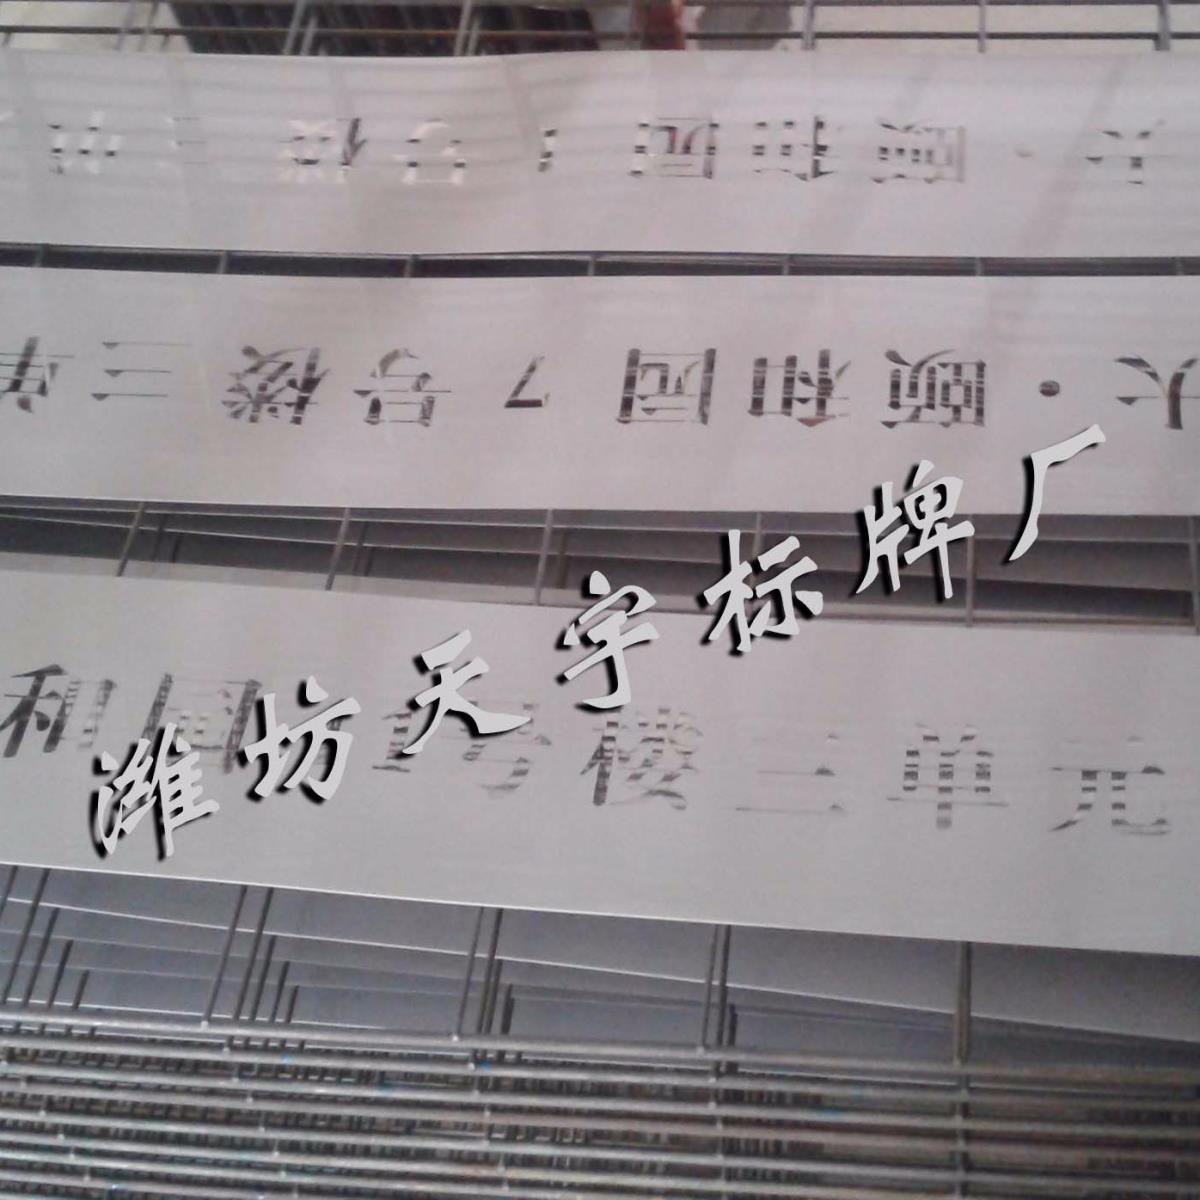 大·颐和园1号楼 单
大·颐和园7号楼三单
和园 号楼三单元
潍坊天宇标牌厂